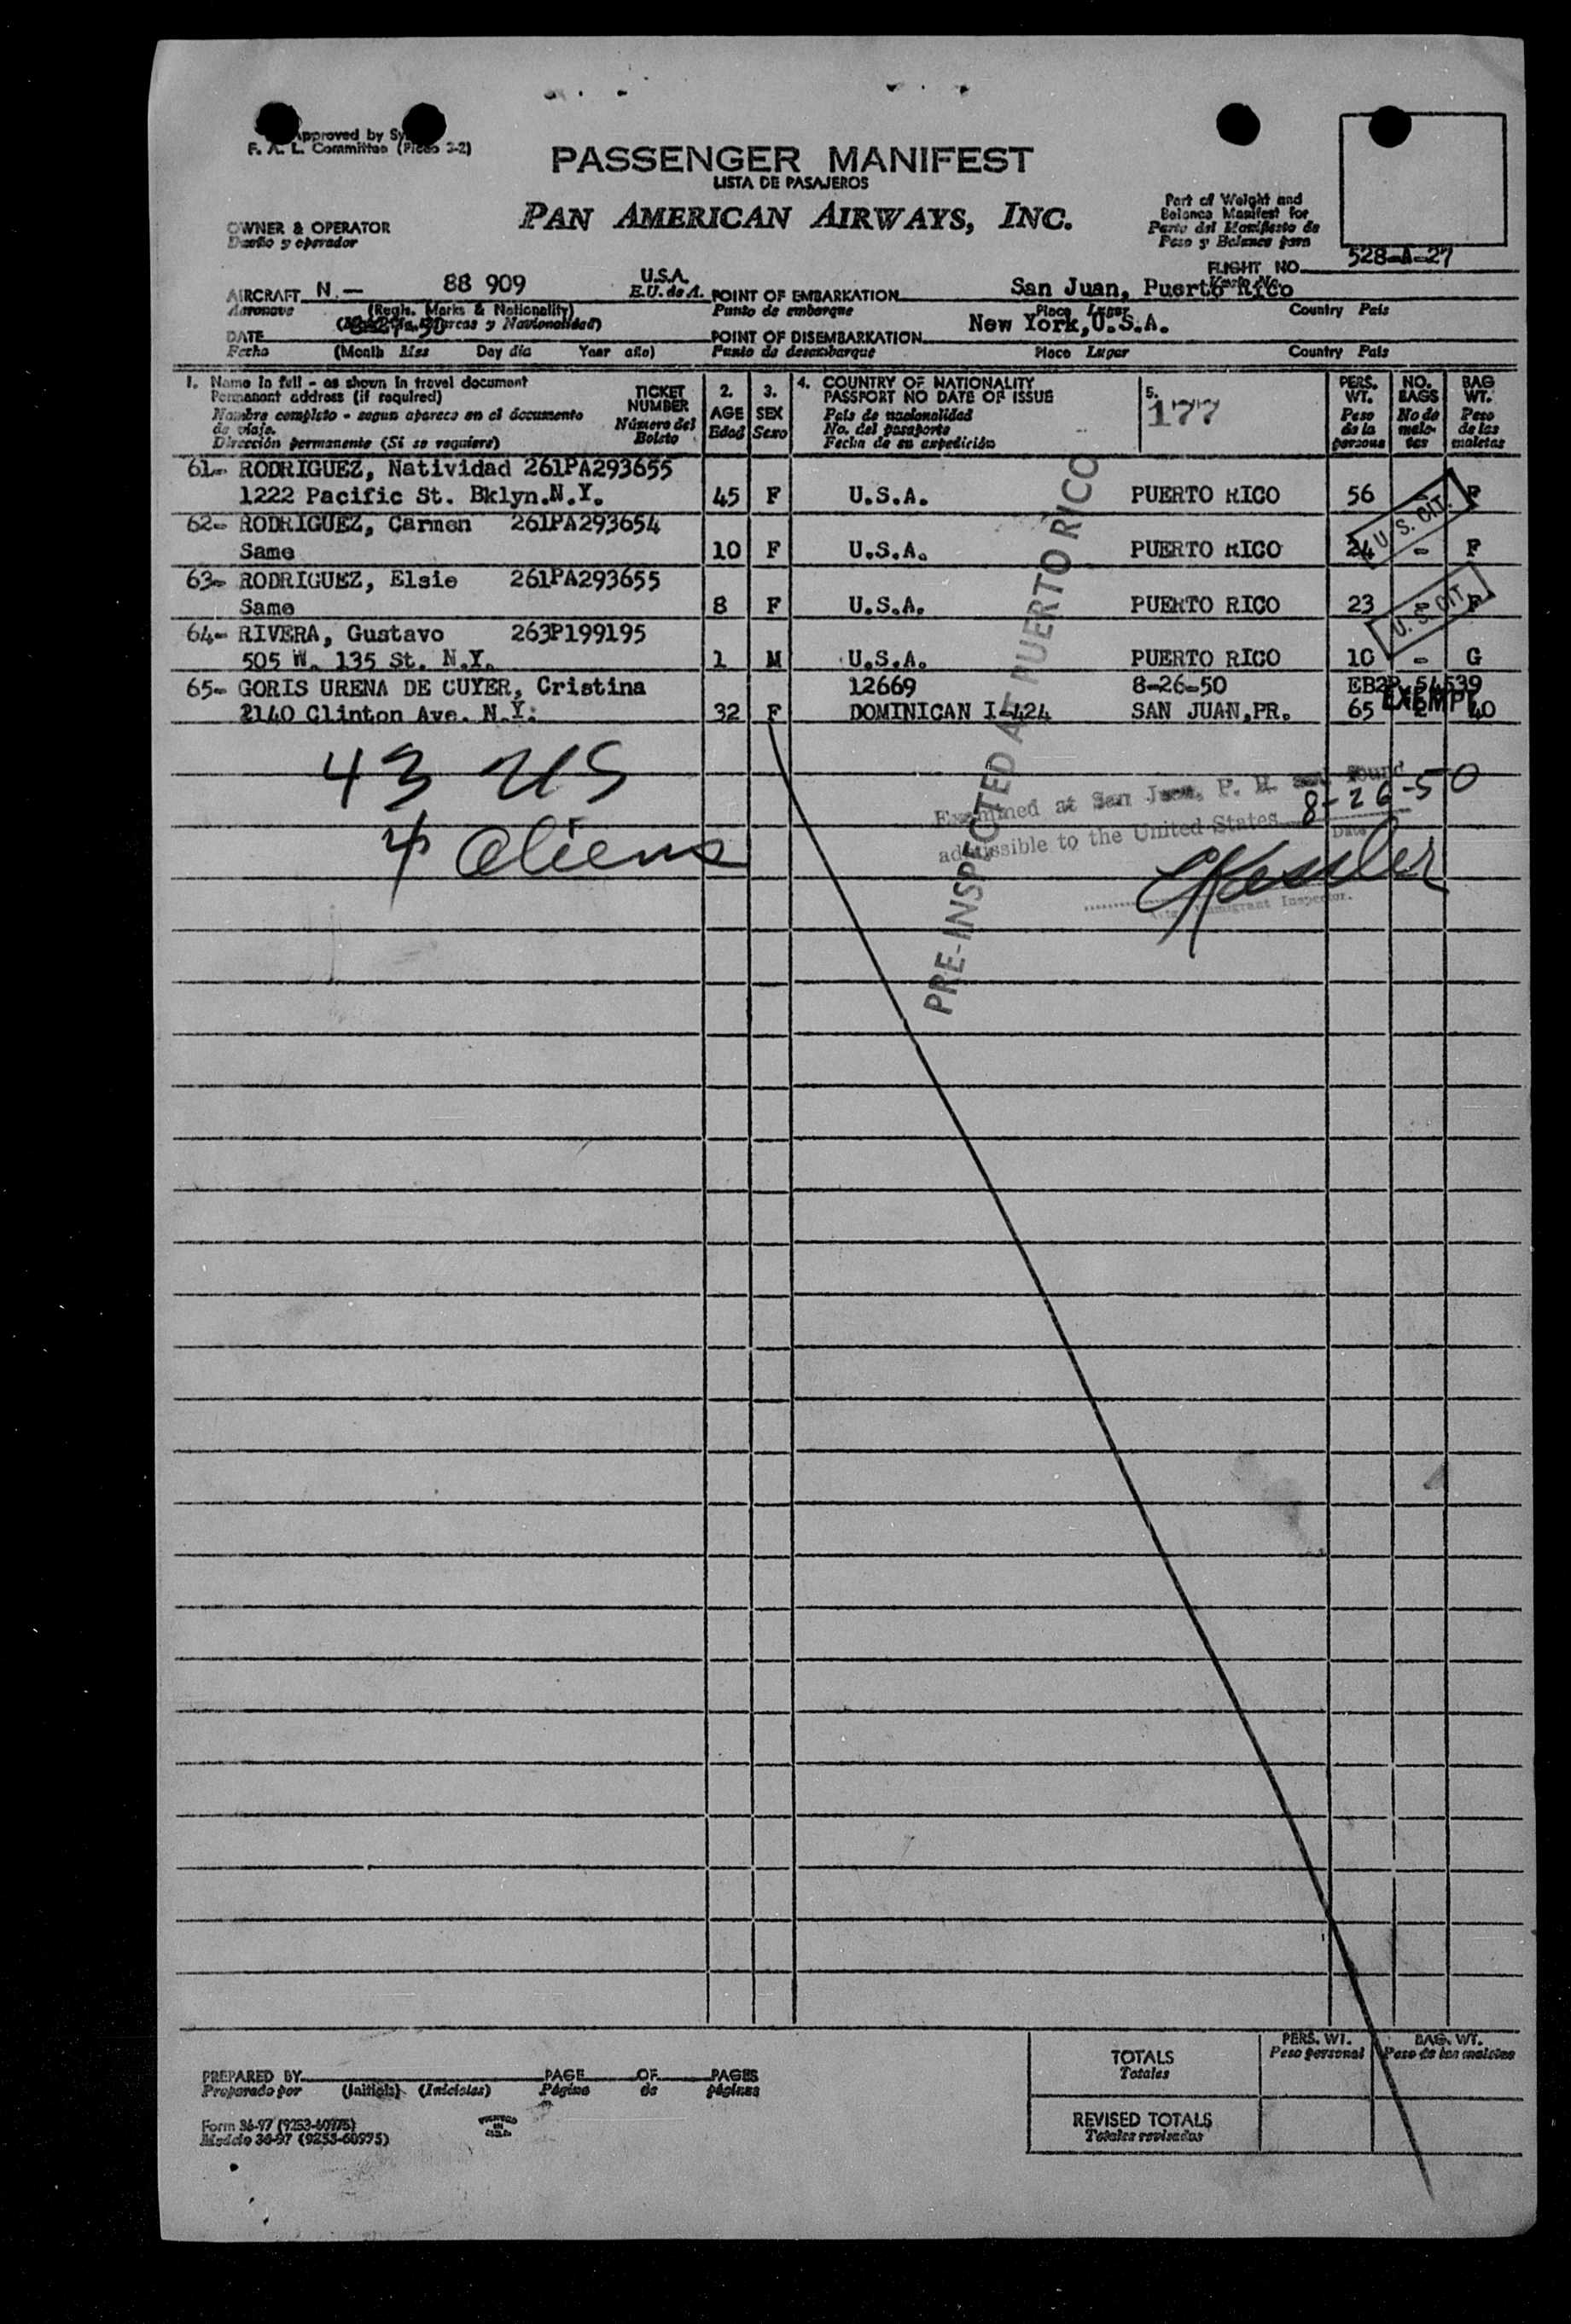 Approved by
F. A. L. Committee
PASSENGER MANIFEST
LISTA DE PASAJEROS
PAN AMERICAN AIRWAYS, INC.
Part of Weight and
Balance Manifest for
Parte del Manifiesto de
Peso y Balance para
OWNER & OPERATOR
Dueño y operador
FLIGHT NO. 528-A-27
AIRCRAFT N.— 88 909 U.S.A.
Aeronave (Regis. Marks & Nationality) E.U. de A.
POINT OF EMBARKATION San Juan, Puerto Rico
Punto de embarque Place Lugar Country País
DATE
Fecha (Month Mes Day día Year año)
POINT OF DISEMBARKATION New York, U.S.A.
Punto de desembarque Place Lugar Country País
1. Name in full - as shown in travel document
Permanent address (if required)
Nombre completo - segun aparece en el documento
de viaje.
Dirección permanente (Si se requiere)
TICKET
NUMBER
Número del
Boleto
2.
AGE
Edad
3.
SEX
Sexo
4. COUNTRY OF NATIONALITY
PASSPORT NO DATE OF ISSUE
País de nacionalidad
No. del pasaporte
Fecha de su expedición
5.
177
PERS.
WT.
Peso
de la
persona
NO.
BAGS
No de
male-
tas
BAG
WT.
Peso
de las
maletas
61- RODRIGUEZ, Natividad 261PA293655
1222 Pacific St. Bklyn.N.Y. 45 F U.S.A. PUERTO RICO 56 F
U.S. CIT.
62- RODRIGUEZ, Carmen 261PA293654
Same 10 F U.S.A. PUERTO RICO 24 - F
63- RODRIGUEZ, Elsie 261PA293655
Same 8 F U.S.A. PUERTO RICO 23 - F
U.S. CIT.
64- RIVERA, Gustavo 263P199195
505 W. 135 St. N.Y. 1 M U.S.A. PUERTO RICO 10 - G
65- GORIS URENA DE CUYER, Cristina 12669 8-26-50 EB2P 54539
2140 Clinton Ave. N.Y. 32 F DOMINICAN I-424 SAN JUAN,PR. 65 2 40
EXEMPT
PRE-INSPECTED AT PUERTO RICO
43 US
4 Aliens
Examined at San Juan, P. R. and found
admissible to the United States 8-26-50
Date
Kessler
Immigrant Inspector.
PREPARED BY PAGE OF PAGES
Preparado por (Initials) (Iniciales) Página de páginas
Form 36-97 (9253-60975)
Modelo 36-97 (9253-60975)
PRINTED
IN
U.S.A.
PERS. WT.
Peso personal
BAG. WT.
Peso de las maletas
TOTALS
Totales
REVISED TOTALS
Totales revisados